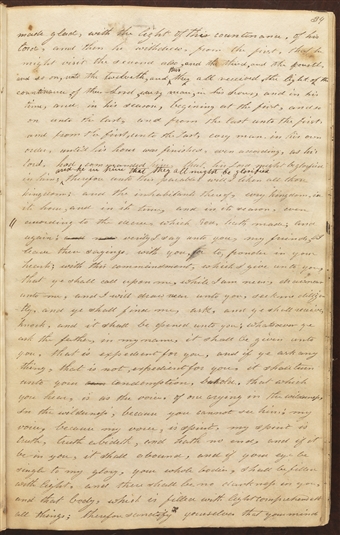 39
made glad, with the light of the countenance, of his
lord, and then he withdrew, from the first, that he
might visit the second also, and the third, and the fourth
and so on, unto the twelveth, and thus they all received, the light of the
countinance of their Lord, evry man, in his hour, and in his
time, and in his season, begining at the first, and so
on unto the last, and from the last unto the first
and from the first, unto the last, evry man in his own
order, until his hour was finished, even according, as his
lord, had commanded him, that, his lord might be glorified
and he in him that, they all might be glorified
in him, therefore unto this parable, will I liken all these
kingdoms and the inhabitants thereof, evry kingdom, in
its hour, and in its time, and in its season, even
according to the decree, which God, hath made; and
again; verily I say unto you, my friends, I
leave these sayings, with you to, ponder in your
hearts, with this commandment, which I give unto you,
that ye shall call upon me, while I am near, draw near
unto me, and I will draw near unto you, seek me diligen
tly, and ye shall find me, ask, and ye shall receive
knock, and it shall be opened unto you; whatsoever ye
ask the father, in my name, it shall be given unto
you, that is expedient for you, and if ye ask any
thing, that is not expedient for you, it shall turn
unto your condemnation, behold, that which
you hear, is as the voice, of one crying in the wilderness,
in the wilderness, because you cannot see him; my
voice, because my voice, is spirit, my spirit is
truth, truth abideth, and hath no end, and if it
be in you, it shall abound, and if your eye be
single to my glory, your whole bodies, shall be filled
with light, and there shall be no darkness in you,
and that body, which is filled with light comprehendeth
all things; therefore sanctify yourselves that your minds